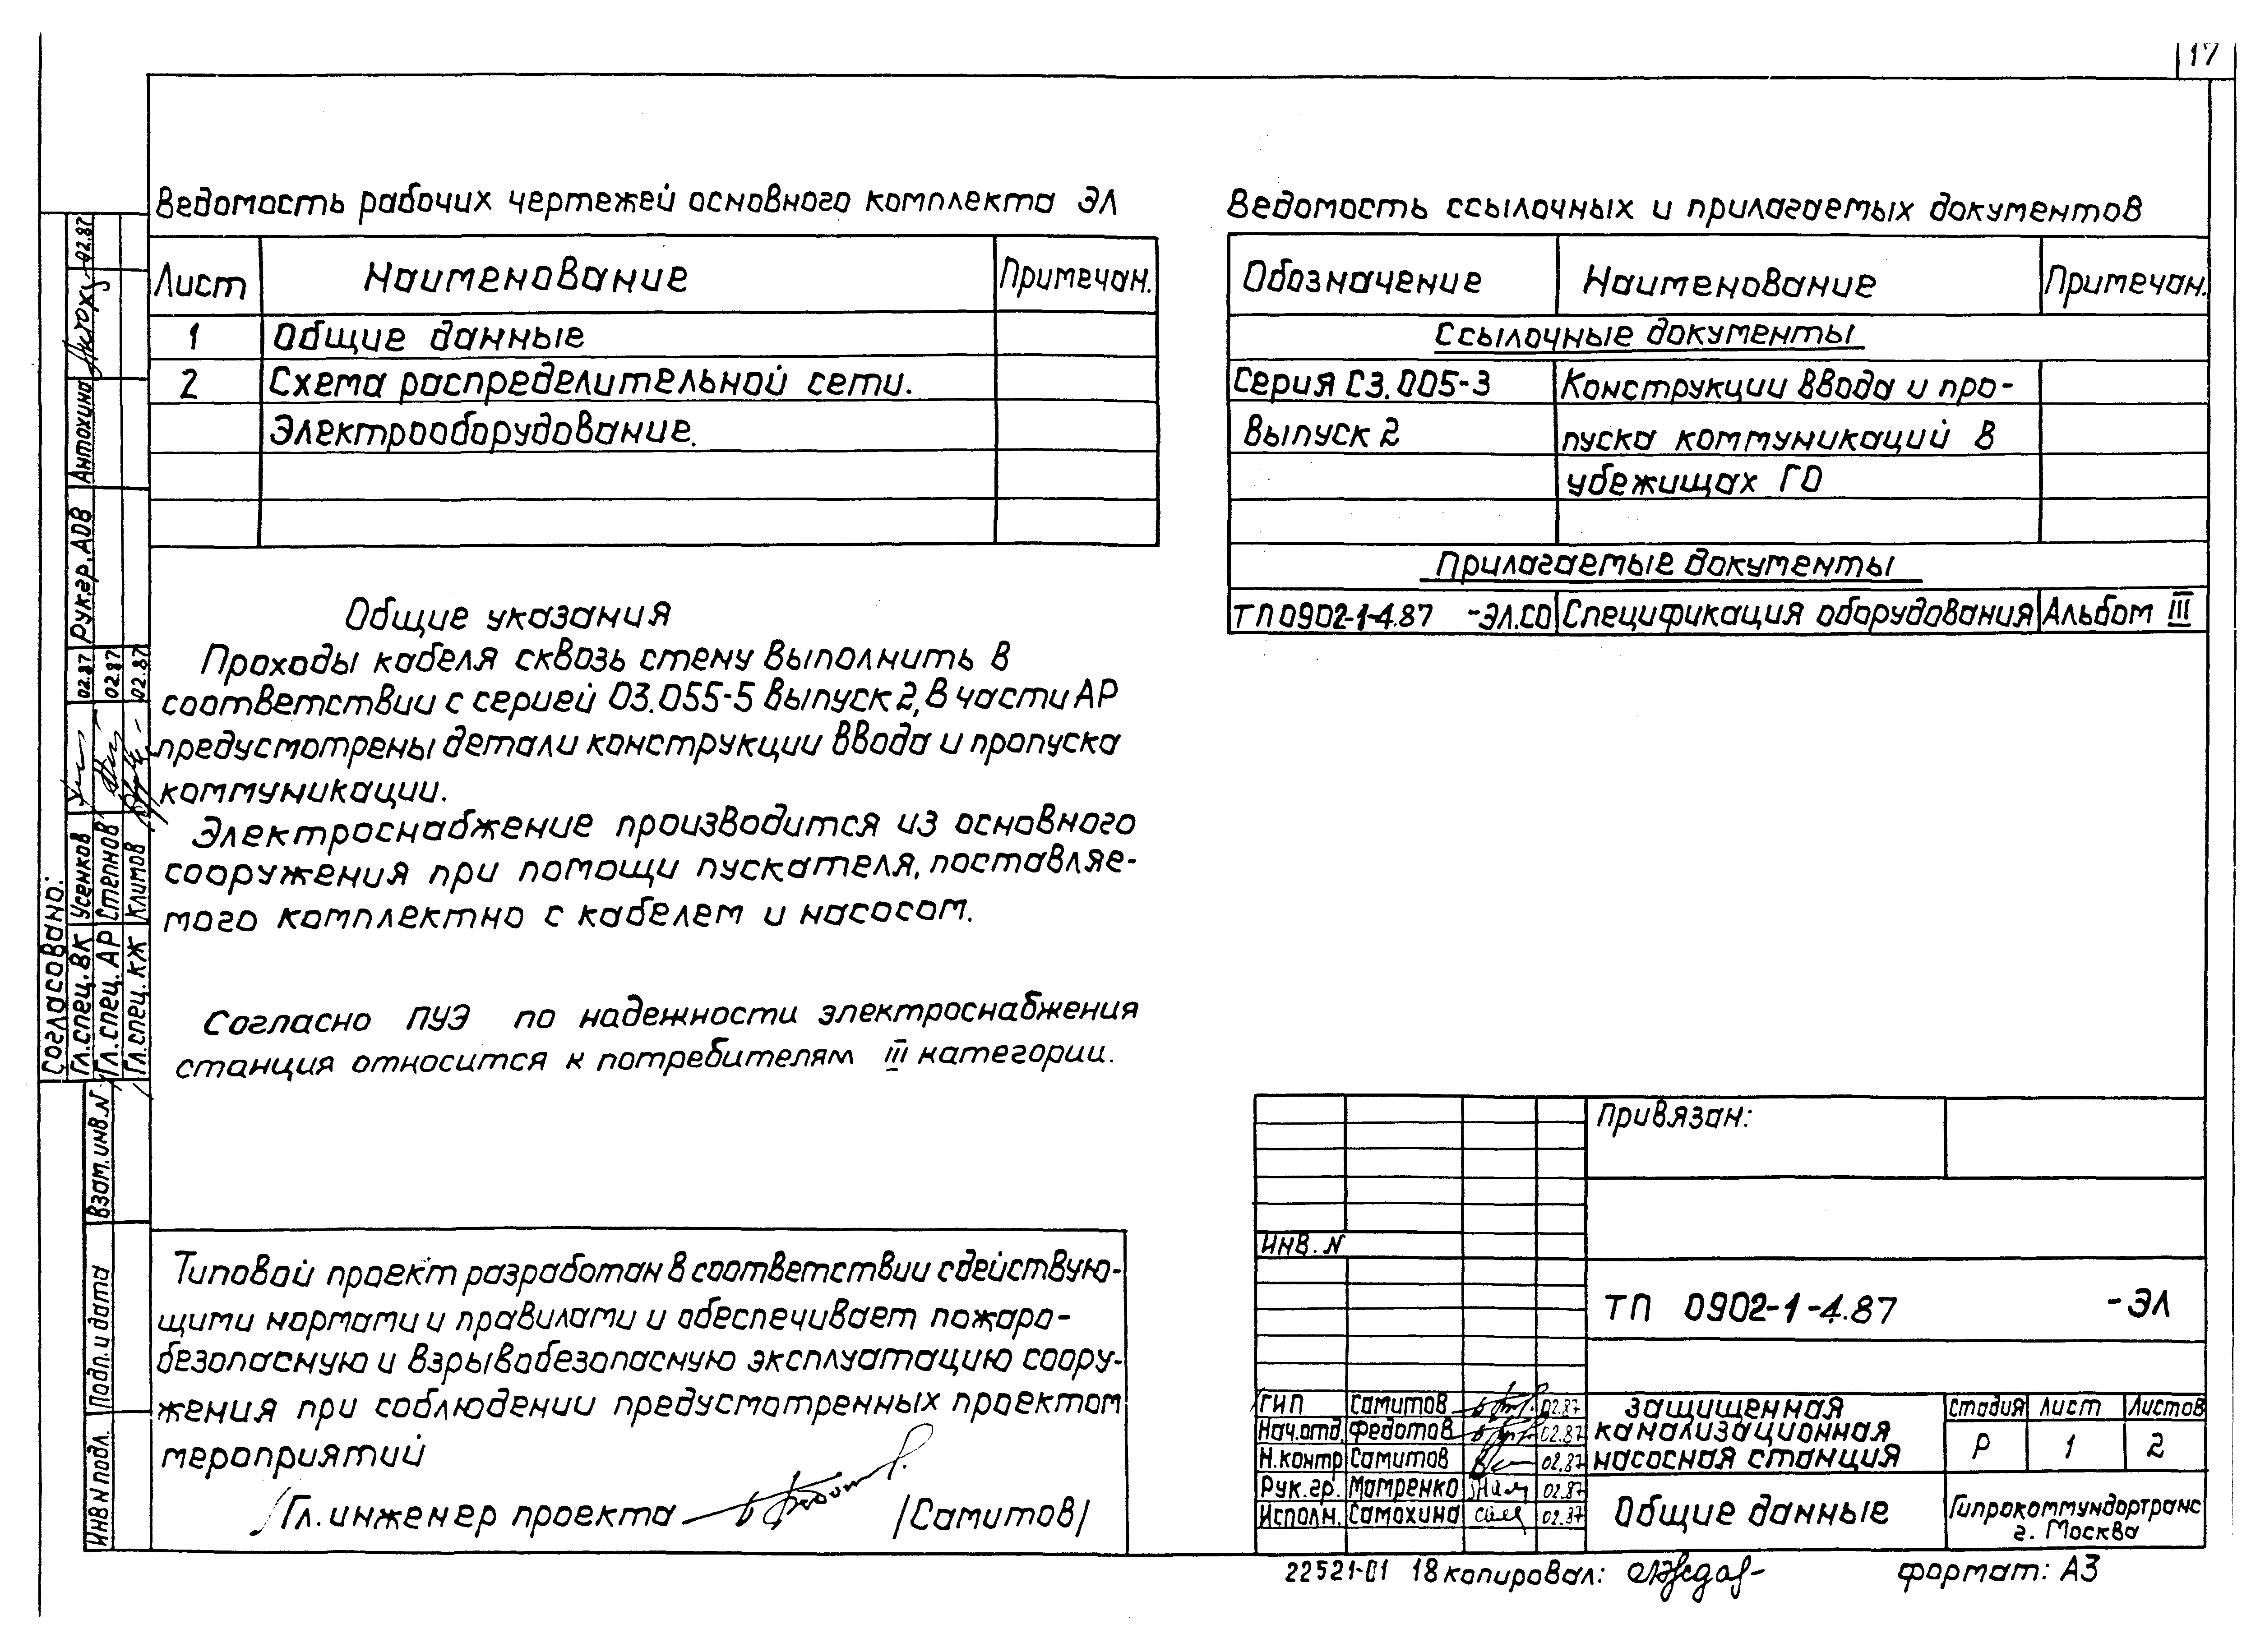 17
Ведомость рабочих чертежей основного комплекта ЭЛ
Лист Наименование Примечан.
1 Общие данные
2 Схема распределительной сети.
Электрооборудование.
Ведомость ссылочных и прилагаемых документов
Обозначение Наименование Примечан.
Ссылочные документы
Серия С3.005-3 Конструкции ввода и про-
Выпуск 2 пуска коммуникаций в
убежищах ГО
Прилагаемые документы
ТП 0902-1-4.87 -ЭЛ.СО Спецификация оборудования Альбом III
Общие указания
Проходы кабеля сквозь стену выполнить в
соответствии с серией 03.055-5 выпуск 2, в части АР
предусмотрены детали конструкции ввода и пропуска
коммуникации.
Электроснабжение производится из основного
сооружения при помощи пускателя, поставляе-
мого комплектно с кабелем и насосом.
Согласно ПУЭ по надежности электроснабжения
станция относится к потребителям III категории.
Типовой проект разработан в соответствии с действую-
щими нормами и правилами и обеспечивает пожаро-
безопасную и взрывобезопасную эксплуатацию соору-
жения при соблюдении предусмотренных проектом
мероприятий
Гл. инженер проекта /Самитов/
Согласовано:
Гл.спец. ВК Усенков 02.87 Рук.гр. АОВ Антохина 02.87
Гл.спец. АР Степнов 02.87
Гл.спец. КЖ Климов 02.87
Взам.инв.N
Подп. и дата
Инв N подл.
Привязан:
Инв. N
ТП 0902-1-4.87 -ЭЛ
ГИП Самитов 02.87
Нач.отд. Федотов 02.87
Н.контр Самитов 02.87
Рук.гр. Мамренко 02.87
Исполн. Самохина 02.87
Защищенная
канализационная
насосная станция
стадия лист листов
Р 1 2
Общие данные
Гипрокоммундортранс
г. Москва
22521-01 18 копировал: формат: А3